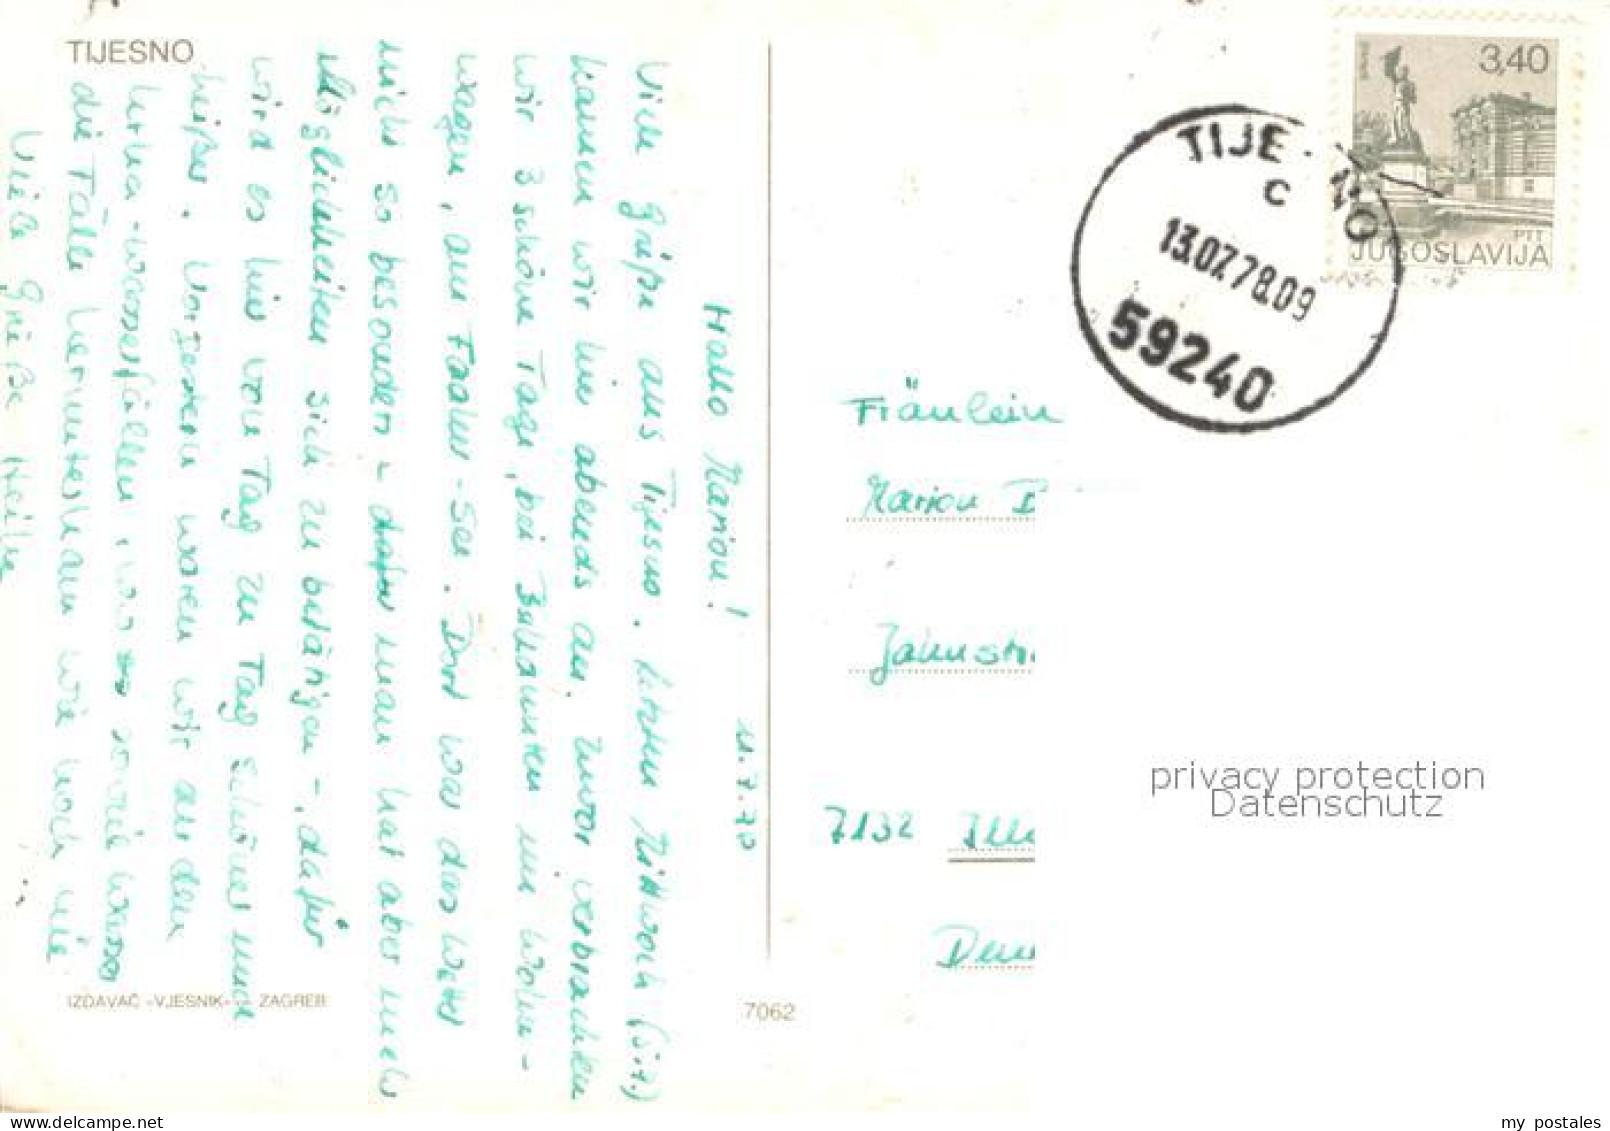 TIJESNO
11.7.78
Hallo Marion!
Viele Grüße aus Tijesno. Letzten Mittwoch (5.7.)
kamen wir hier abends an. Zuvor verbrachten
wir 3 schöne Tage, bei Bekannten im Wohn-
wagen, am Faaker-See. Dort war das Wetter
nicht so besonders - dafür man hat aber mehr
Möglichkeiten sich zu betätigen -, dafür
wird es hier von Tag zu Tag schöner und
heißer. Vorgestern waren wir an den
Krka-Wasserfällen, wo soviel Wasser
die Fälle herunterkam wie noch nie
Viele Grüße Heike
IZDAVAČ »VJESNIK« — ZAGREB
7062
3,40
PTT
JUGOSLAVIJA
TIJE NO
C
13.07.78.09
59240
Fräulein
Marion
Jahnstr.
7132 Ill
privacy protection
Datenschutz
my postales
www.delcampe.net